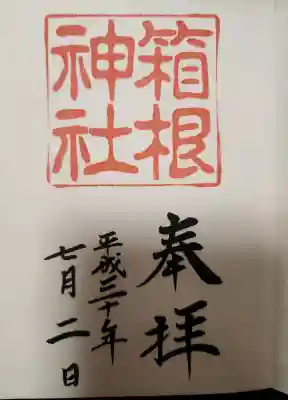 箱根
神社
奉拝
平成三十年
七月二日